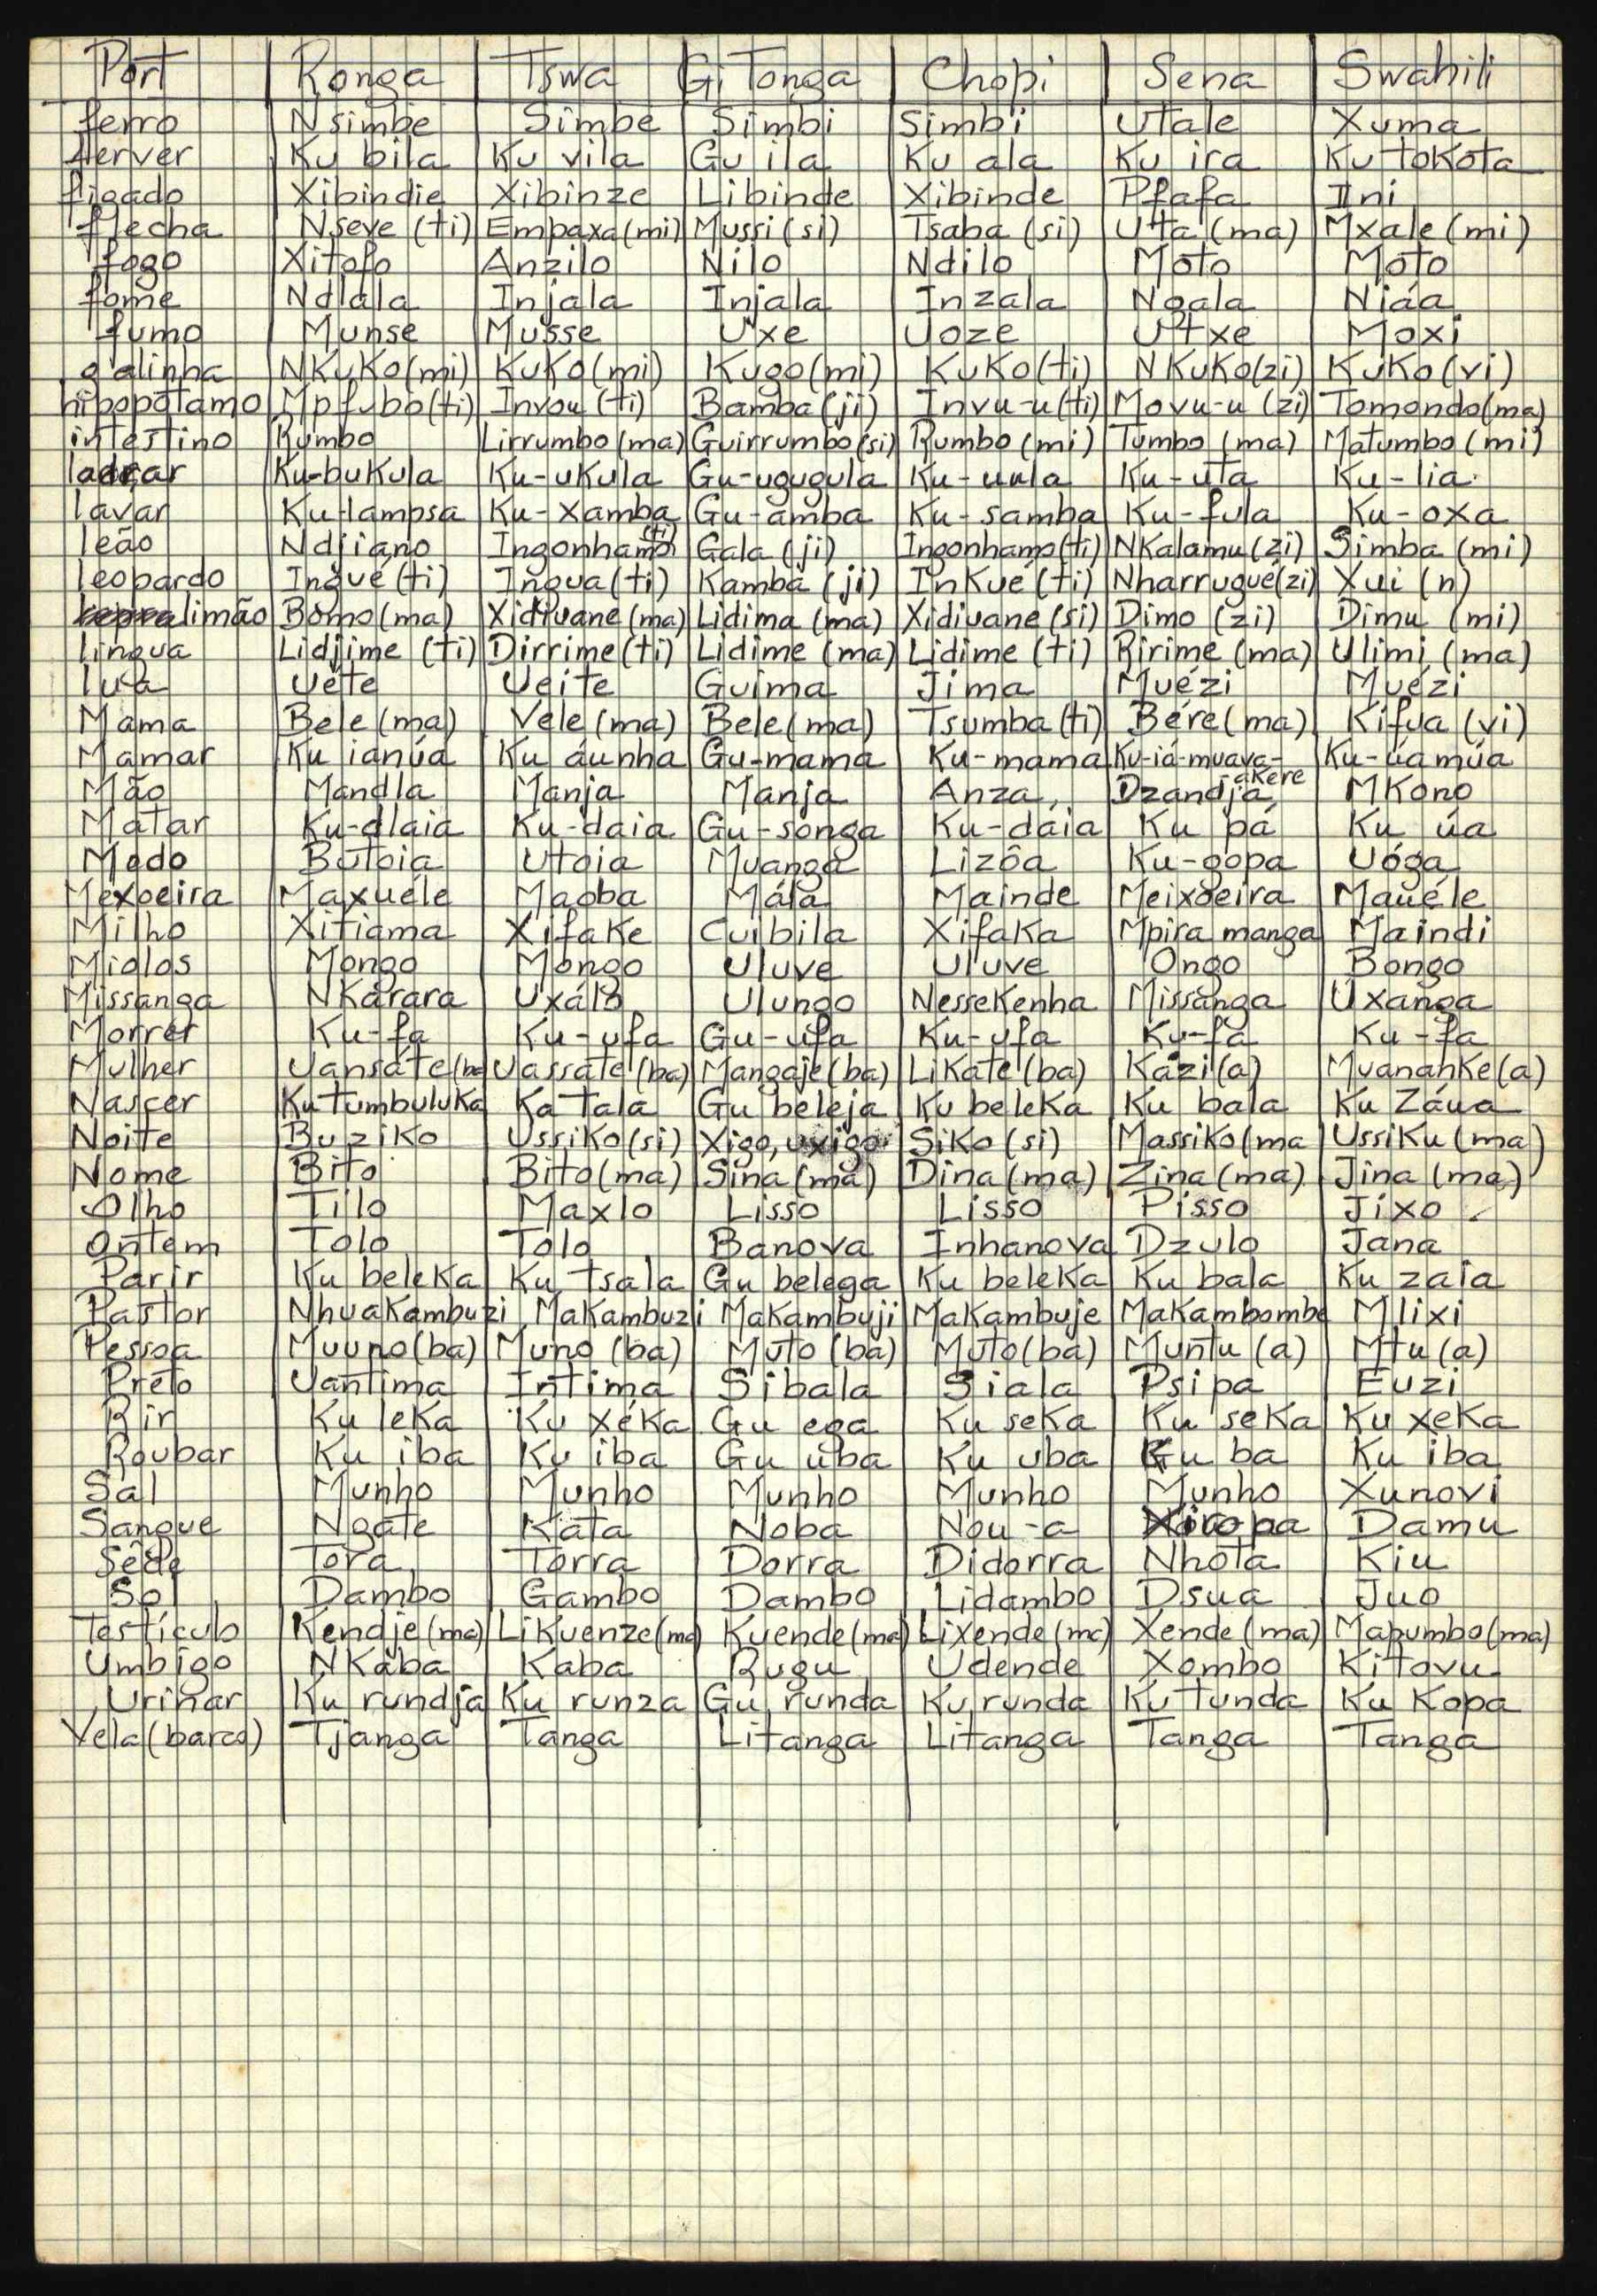 Port Ronga Tswa GiTonga Chopi Sena Swahili
ferro Nsimbe Simbe Simbi Simbi Utale Xuma
ferver Ku bila Ku vila Gu ila Ku ala Ku ira Ku tokota
figado Xibindie Xibinze Libinde Xibinde Pfafa Ini
flecha Nseve (ti) Empaxa (mi) Mussi (si) Tsaba (si) Utta (ma) Mxale (mi)
fogo Xitofo Anzilo Nilo Ndilo Moto Moto
fome Ndlala Injala Injala Inzala Ngala Niáa
fumo Munse Musse Uxe Uoze Utxe Moxi
galinha Nkuko (mi) Kuko (mi) Kugo (mi) Kuko (ti) Nkuko (zi) Kuko (vi)
hipopótamo Mpfubo (ti) Invou (ti) Bamba (ji) Invu-u (ti) Movu-u (zi) Tomondo (ma)
intestino Rumbo Lirrumbo (ma) Guirrumbo (si) Rumbo (mi) Tumbo (ma) Matumbo (mi)
ladrar Ku-bukula Ku-ukula Gu-ugugula Ku-uula Ku-uta Ku-lia
lavar Ku-lampsa Ku-xamba Gu-amba Ku-samba Ku-fula Ku-oxa
leão Ndjiano Ingonhamo (ti) Gala (ji) Ingonhamo (ti) Nkalamu (zi) Simba (mi)
leopardo Ingué (ti) Ingua (ti) Kamba (ji) Inkué (ti) Nharrugué (zi) Xui (n)
limão Bomo (ma) Xidivane (ma) Lidima (ma) Xidivane (si) Dimo (zi) Dimu (mi)
lingua Lidjime (ti) Dirrime (ti) Lidime (ma) Lidime (ti) Ririme (ma) Ulimi (ma)
lua Uéte Ueite Guima Jima Muézi Muézi
Mama Bele (ma) Vele (ma) Bele (ma) Tsumba (ti) Bére (ma) Kifua (vi)
Mamar Ku ianúa Ku áunha Gu-mama Ku-mamá Ku-iá-muava-akere Ku-úamúa
Mão Mandla Manja Manja Anza Dzandja Mkono
Matar Ku-dlaia Ku-daia Gu-songa Ku-daia Ku pá Ku úa
Medo Butoia Utoia Muanga Lizôa Ku-gopa Uóga
Mexoeira Maxuéle Maoba Mála Mainde Meixoeira Mauéle
Milho Xitiama Xifake Cuibila Xifaka Mpira manga Maindi
Miolos Mongo Mongo Uluve Uluve Ongo Bongo
Missanga Nkarara Uxálo Ulungo Nessekenha Missanga Uxanga
Morrer Ku-fa Ku-ufa Gu-ufa Ku-ufa Ku-fa Ku-fa
Mulher Uansáte (ba Uassáte (ba) Mangaje (ba) Likate (ba) Kázi (a) Muanahke (a)
Nascer Ku tumbuluka Ka tala Gu beleja Ku beleka Ku bala Ku Záua
Noite Buziko Ussiko (si) Xigo, uxigo Siko (si) Massiko (ma Ussiku (ma)
Nome Bito Bito (ma) Sina (ma) Dina (ma) Zina (ma) Jina (ma)
Olho Tilo Maxlo Lisso Lisso Pisso Jixo
Ontem Tolo Tolo Banova Inhanova Dzulo Jana
Parir Ku beleka Ku tsala Gu belega Ku beleka Ku bala Ku zaia
Pastor Nhuakambuzi Makambuzi Makambuji Makambuje Makambombe Mlixi
Pessoa Muuno (ba) Muno (ba) Muto (ba) Muto (ba) Muntu (a) Mtu (a)
Preto Uantima Intima Sibala Siala Psipa Euzi
Rir Ku leka Ku xéka Gu ega Ku seka Ku seka Ku xeka
Roubar Ku iba Ku iba Gu uba Ku uba Ku ba Ku iba
Sal Munho Munho Munho Munho Munho Xunovi
Sangue Ngate Kata Noba Nou-a Xiropa Damu
Sêde Tora Torra Dorra Didorra Nhota Kiu
Sol Dambo Gambo Dambo Lidambo Dsua Juo
Testículo Kendje (ma) Likuenze (ma) Kuende (ma) Lixende (ma) Xende (ma) Mapumbo (ma)
Umbigo Nkaba Kaba Rugu Udende Xombo Kitovu
Urinar Ku rundja Ku runza Gu runda Ku runda Ku tunda Ku Kopa
Vela (barco) Tjanga Tanga Litanga Litanga Tanga Tanga